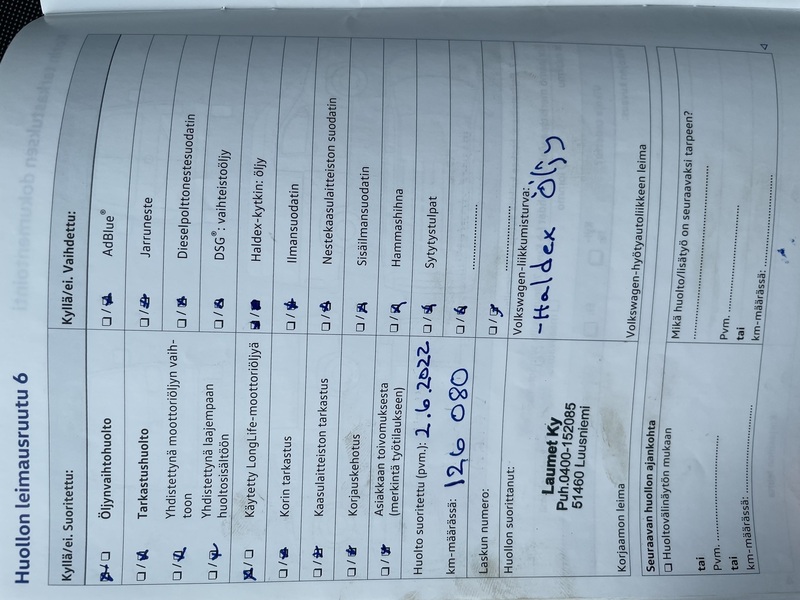 Huollon leimausruutu 6
Kyllä/ei. Suoritettu:
☒ / ☐ Öljynvaihtohuolto
☐ / ☒ Tarkastushuolto
☐ / ☒ Yhdistettynä moottoriöljyn vaih-
toon
☐ / ☒ Yhdistettynä laajempaan
huoltosisältöön
☒ / ☐ Käytetty LongLife-moottoriöljyä
☐ / ☒ Korin tarkastus
☐ / ☒ Kaasulaitteiston tarkastus
☐ / ☒ Korjauskehotus
☐ / ☒ Asiakkaan toivomuksesta
(merkintä työtilaukseen)
Huolto suoritettu (pvm.): 2.6.2022
km-määrässä: 126 080
Laskun numero:
Huollon suorittanut:
Laumet Ky
Puh.0400-152085
51460 Luusniemi
Korjaamon leima
Kyllä/ei. Vaihdettu:
☐ / ☒ AdBlue®
☐ / ☒ Jarruneste
☐ / ☒ Dieselpolttonestesuodatin
☐ / ☒ DSG®: vaihteistoöljy
☒ / ☒ Haldex-kytkin: öljy
☐ / ☒ Ilmansuodatin
☐ / ☒ Nestekaasulaitteiston suodatin
☐ / ☒ Sisäilmansuodatin
☐ / ☒ Hammashihna
☐ / ☒ Sytytystulpat
☐ / ☒ ....................
☐ / ☒ ....................
Volkswagen-liikkumisturva:
-Haldex Öljy
Volkswagen-hyötyautoliikkeen leima
Seuraavan huollon ajankohta
☐ Huoltovälinäytön mukaan
tai
Pvm. ....................
tai
km-määrässä: ....................
Mikä huolto/lisätyö on seuraavaksi tarpeen?
....................
Pvm. ....................
tai
km-määrässä: ....................